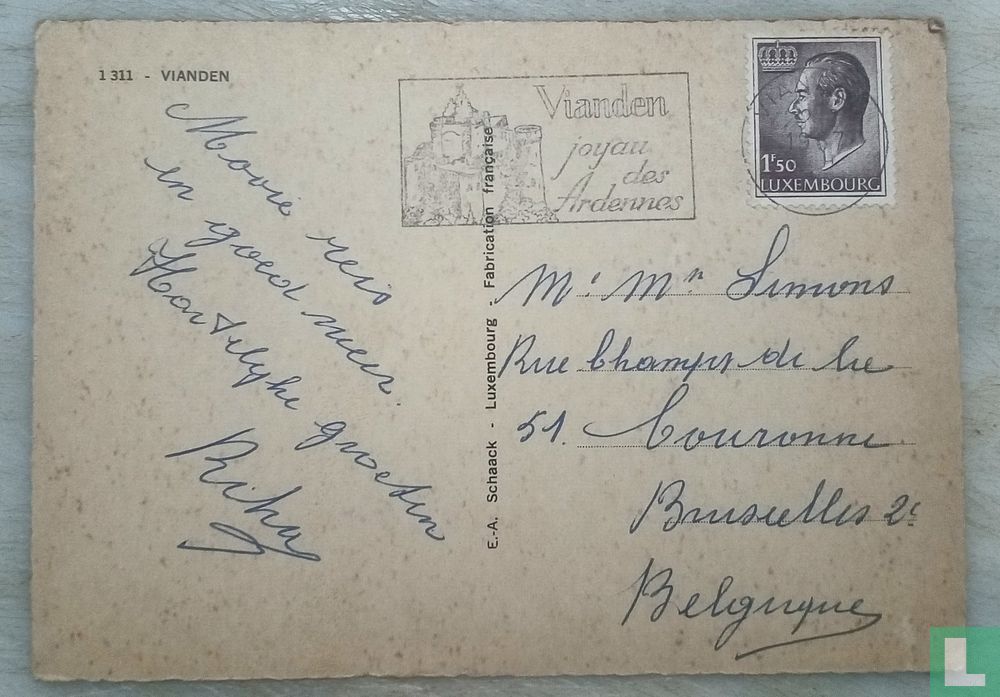 1 311 - VIANDEN
Mooie reis
en goed weer.
Hartelyke groeten
Vianden
joyau
des
Ardennes
1F50
LUXEMBOURG
E.-A. Schaack - Luxembourg - Fabrication française
Mr Mm Simons
Rue Champs de la
51. Couronne
Bruxelles 2e
Belgique
L